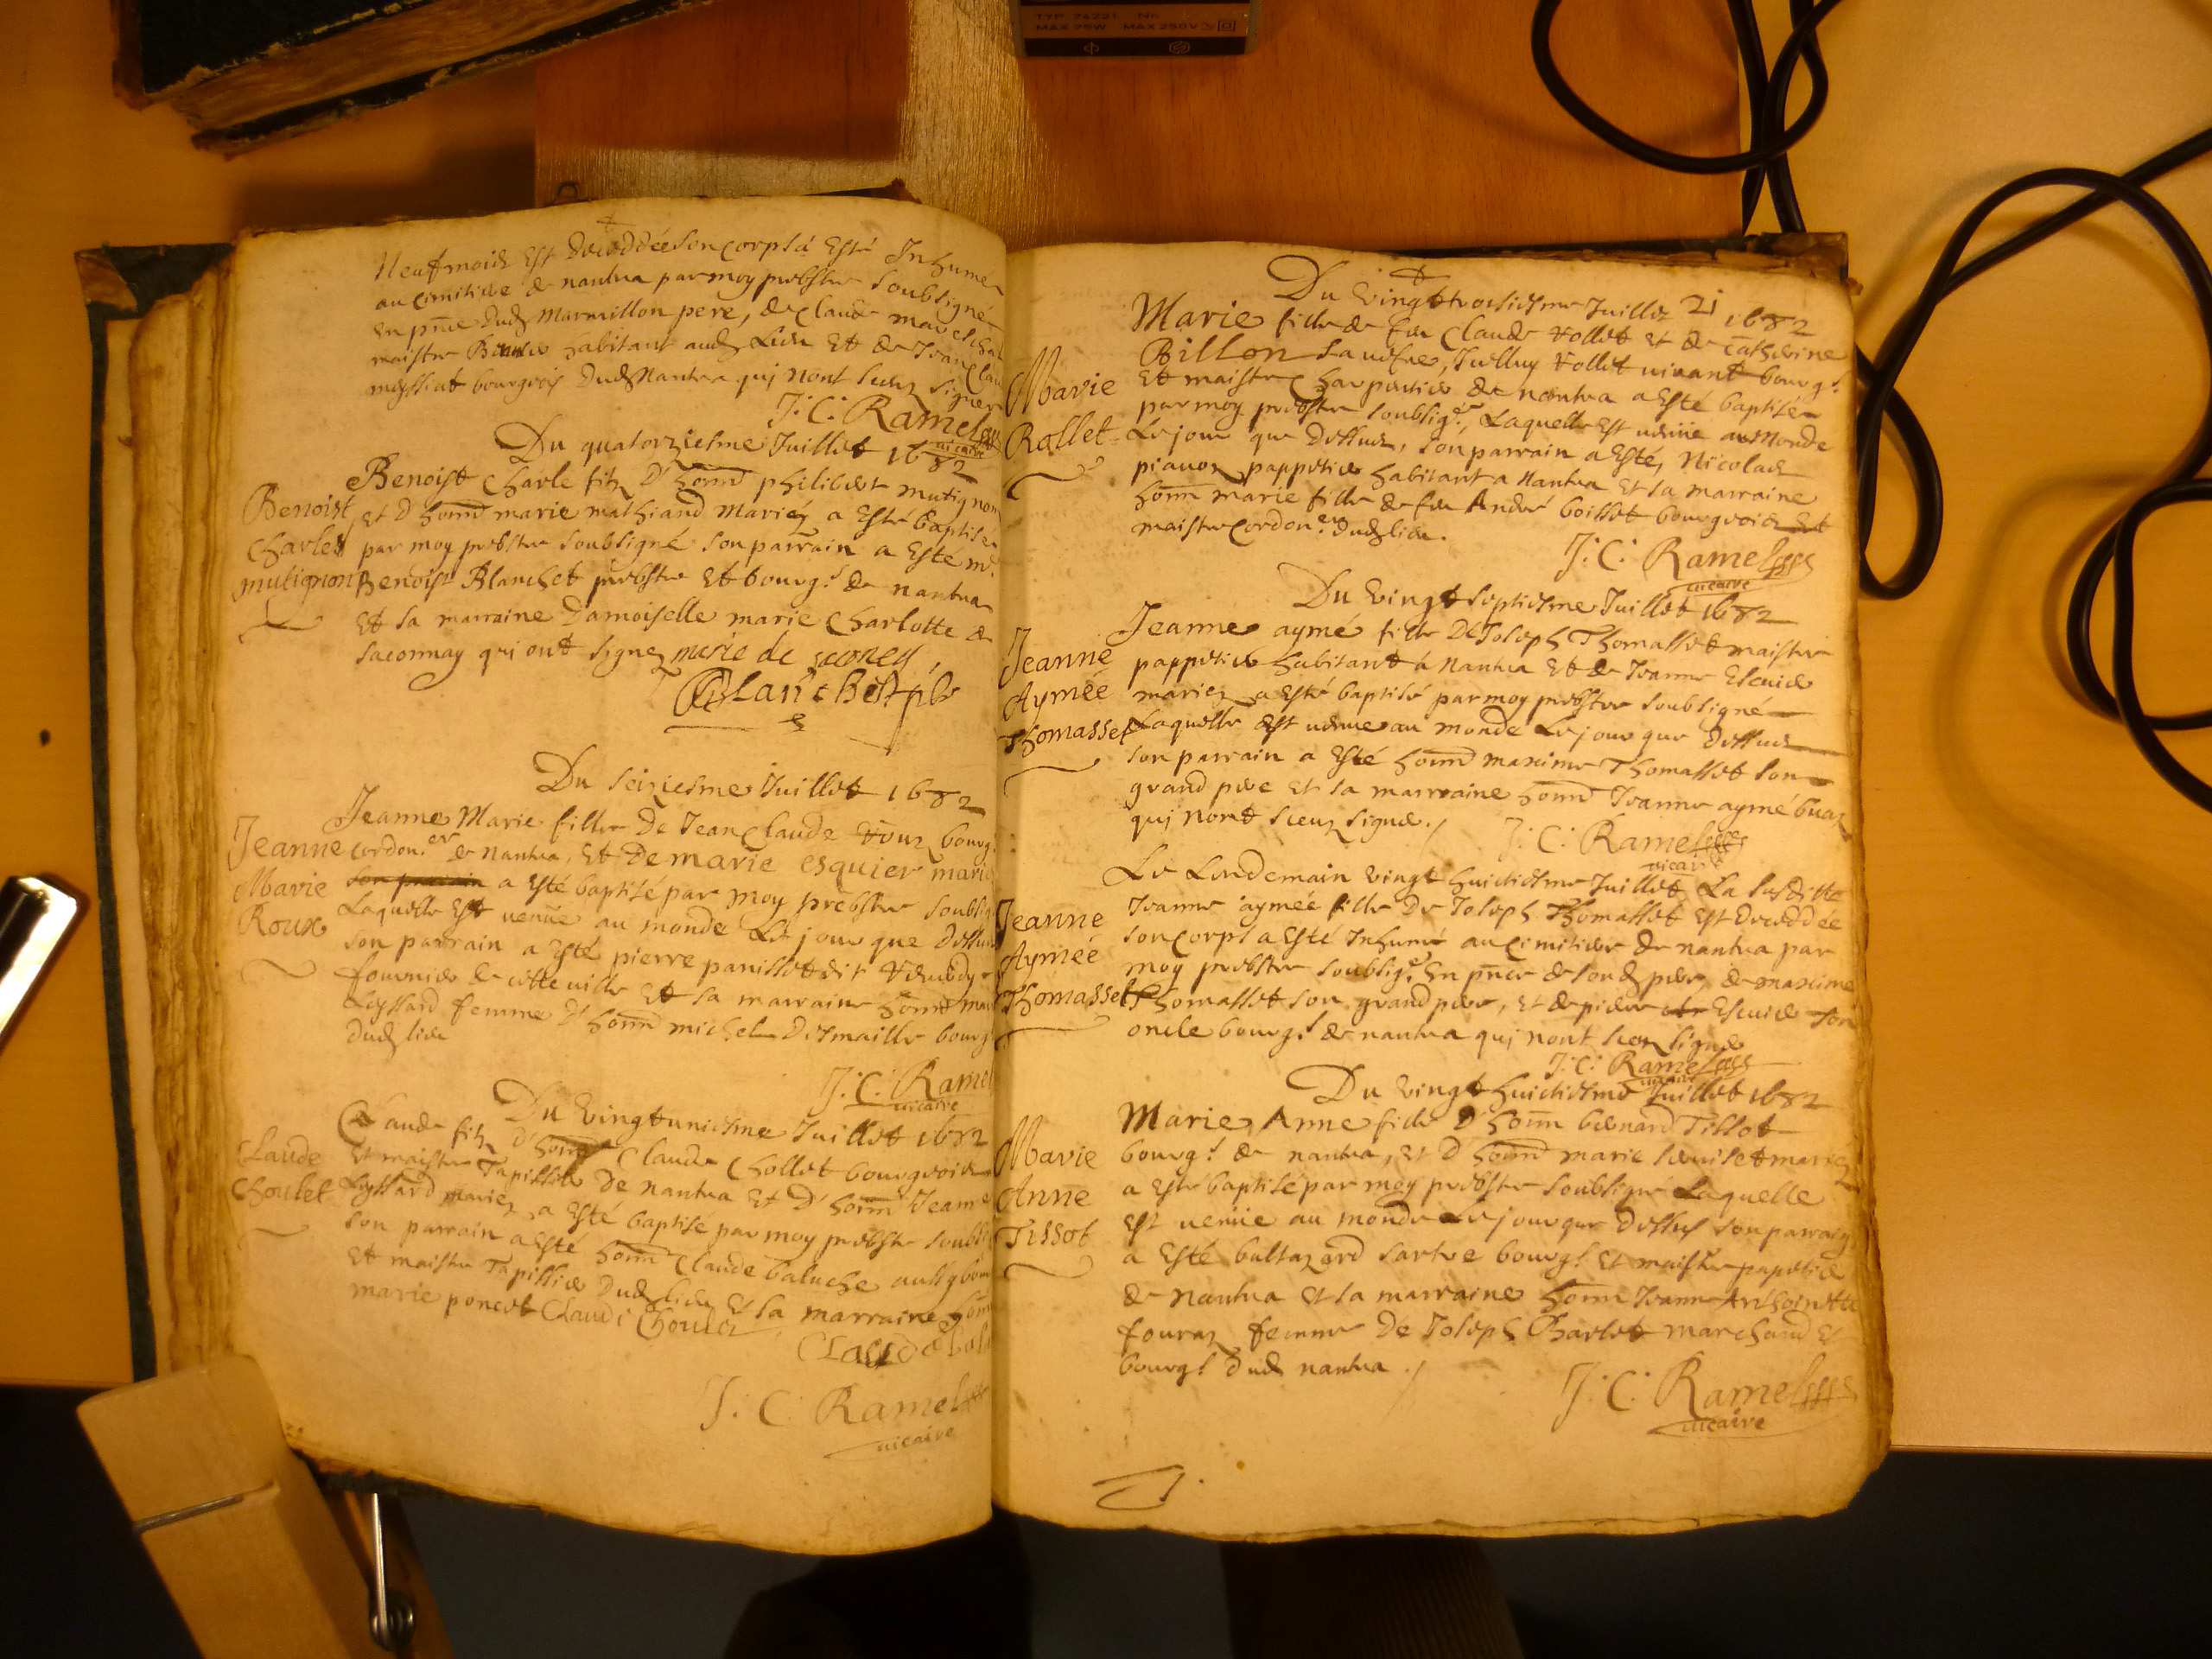 TYP 74221 Nr.
MAX 75W MAX 250V
Neufmois Est deceddée son corps a Esté Inhumée
au cimitiere de nantua par moy prebstre soubsigné
En pnce dud Marmillon pere, de Claude mareschal
maistre habitant aud Lieu Et de Jean Clau
meyssiat bourgeois dud Nantua quj nont sceuz signer
J: C: Ramel
vicaire
Du quatorziesme Juillet 1682
Benoist Charles mutignon
Benoist Charle filz D'honn philibert mutignon
Et D honn marie mathiand Mariez a Esté baptisé
par moy prebstre soubsigné son parrain a Esté mr
Benoist Blanchet prebstre Et bourgs de nantua
Et sa marraine Damoiselle marie Charlotte de
saconnay qui ont signez marie de saconey,
Blanchet pbr
Du seiziesme Juillet 1682
Jeanne Marie Roux
Jeanne Marie fille De Jean Claude bourg
cordoner de Nantua, Et De marie esquier marie
son parrain a Esté baptisé par moy prebstre soubsig
Laquelle Est venüe au monde Le jour que dessus
son parrain a Esté pierre panissot dit
fournier de cette ville Et sa marraine honn mar
Leyssard femme D'honn michel Dismaille bourg
dud lieu
J: C: Ramel
vicaire
Du Vingt uniesme Juillet 1682
Claude Choulet
Claude filz D'honn Claude Chollet bourgeois
Et maistre Tapissier De nantua Et D'honn Jeanne
Leyssard mariez a Esté baptisé par moy prebstre soubs
son parrain a Esté honn Claude baluche aussy bour
Et maistre Tapissier Dud lieu Et sa marraine honn
marie poncet Claude Choulet
CLAUDE bal
J: C: Ramel
vicaire
Du Vingt troisiesme Juillet 1682
Marie Rollet
Marie fille de feu Claude Rollet Et de Catherine
Billon sa vefve, Jcelluy Rollet vivant bourgs
Et maistre Charpentier de nantua a Esté baptisée
par moy prebstre soubsigé, Laquelle Est venüe au Monde
Le jour que Dessus, son parrain a Esté, Nicolas
pappetier habitant a Nantua Et sa marraine
honn marie fille de feu André boisset bourgeois Et
maistre cordoner Dud lieu.
J: C: Ramel
vicaire
Du Vingt septiesme Juillet 1682
Jeanne Aymée Thomasset
Jeanne aymé fille De Joseph Thomasset maistre
pappetier habitant à Nantua Et de Jeanne Escuier
mariez a Esté baptisé par moy prebstre soubsigné
Laquelle est venue au monde Le jour que Dessus
son parrain a Esté honn maxime Thomasset son
grand pere Et sa marraine honn Jeanne aymé
quj nont sceuz signer./ J: C: Ramel
vicaire
Jeanne Aymée Thomasset
Le Lendemain Vingt huictiesme Juillet La susditte
Jeanne aymée fille De Joseph Thomasset Est decedée
son corps a Esté Inhumé au cimitiere de nantua par
moy prebstre soubsigé En pnce de sond pere, de maxime
Thomasset son grand pere, Et de pierre Escuier son
oncle bourgs de nantua quj nont sceuz signer
J: C: Ramel
vicaire
Du Vingt huictiesme Juillet 1682
Marie Anne Tissot
Marie Anne fille D'honn bernard Tissot
bourgs de nantua, Et D'honn marie mariez
a Esté baptisé par moy prebstre soubsigné Laquelle
Est venüe au monde Le jour que Dessus son parrain
a Esté baltazard sartre bourgs Et maistre papetier
de Nantua Et sa marraine honn Jeanne Anthoinette
fouraz femme De Joseph Charlet marchand Et
bourgs dud nantua./
J: C: Ramel
vicaire